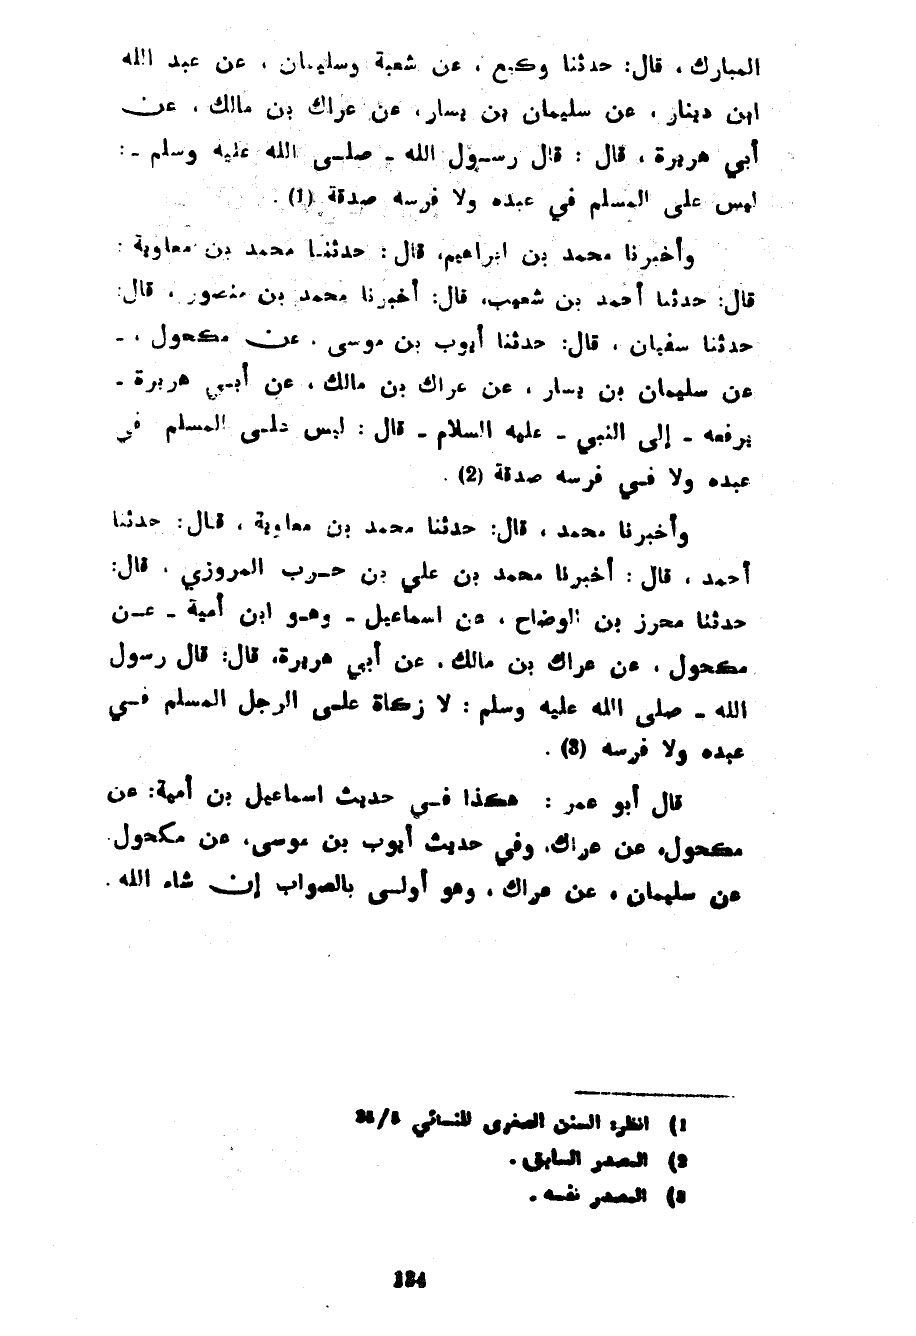 المبارك ، قال: حدثنا وكيع ، عن شعبة وسليمان ، عن عبد الله
ابن دينار ، عن سليمان بن يسار، عن عراك بن مالك ، عن
أبي هريرة ، قال : قال رسول الله ـ صلى الله عليه وسلم ـ :
ليس على المسلم في عبده ولا فرسه صدقة (1) .
وأخبرنا محمد بن ابراهيم، قال : حدثنا محمد بن معاوية :
قال: حدثنا أحمد بن شعيب، قال: أخبرنا محمد بن منصور ، قال:
حدثنا سفيان ، قال: حدثنا أيوب بن موسى . عن مكحول ، ـ
عن سليمان بن يسار ، عن عراك بن مالك ، عن أبي هريرة ـ
يرفعه ـ إلى النبي ـ عليه السلام ـ قال : ليس على المسلم في
عبده ولا في فرسه صدقة (2) .
وأخبرنا محمد ، قال: حدثنا محمد بن معاوية ، قال: حدثنا
أحمد ، قال : أخبرنا محمد بن علي بن حرب المروزي ، قال:
حدثنا محرز بن الوضاح ، عن اسماعيل ـ وهو ابن أمية ـ عن
مكحول ، عن عراك بن مالك ، عن أبي هريرة، قال: قال رسول
الله ـ صلى الله عليه وسلم : لا زكاة على الرجل المسلم في
عبده ولا فرسه (3) .
قال أبو عمر : هكذا في حديث اسماعيل بن أمية: عن
مكحول، عن عراك، وفي حديث أيوب بن موسى، عن مكحول
عن سليمان ، عن عراك ، وهو أولى بالصواب إن شاء الله .
1) انظر: السنن الصغرى للنسائي 5/35
2) المصدر السابق .
3) المصدر نفسه .
134